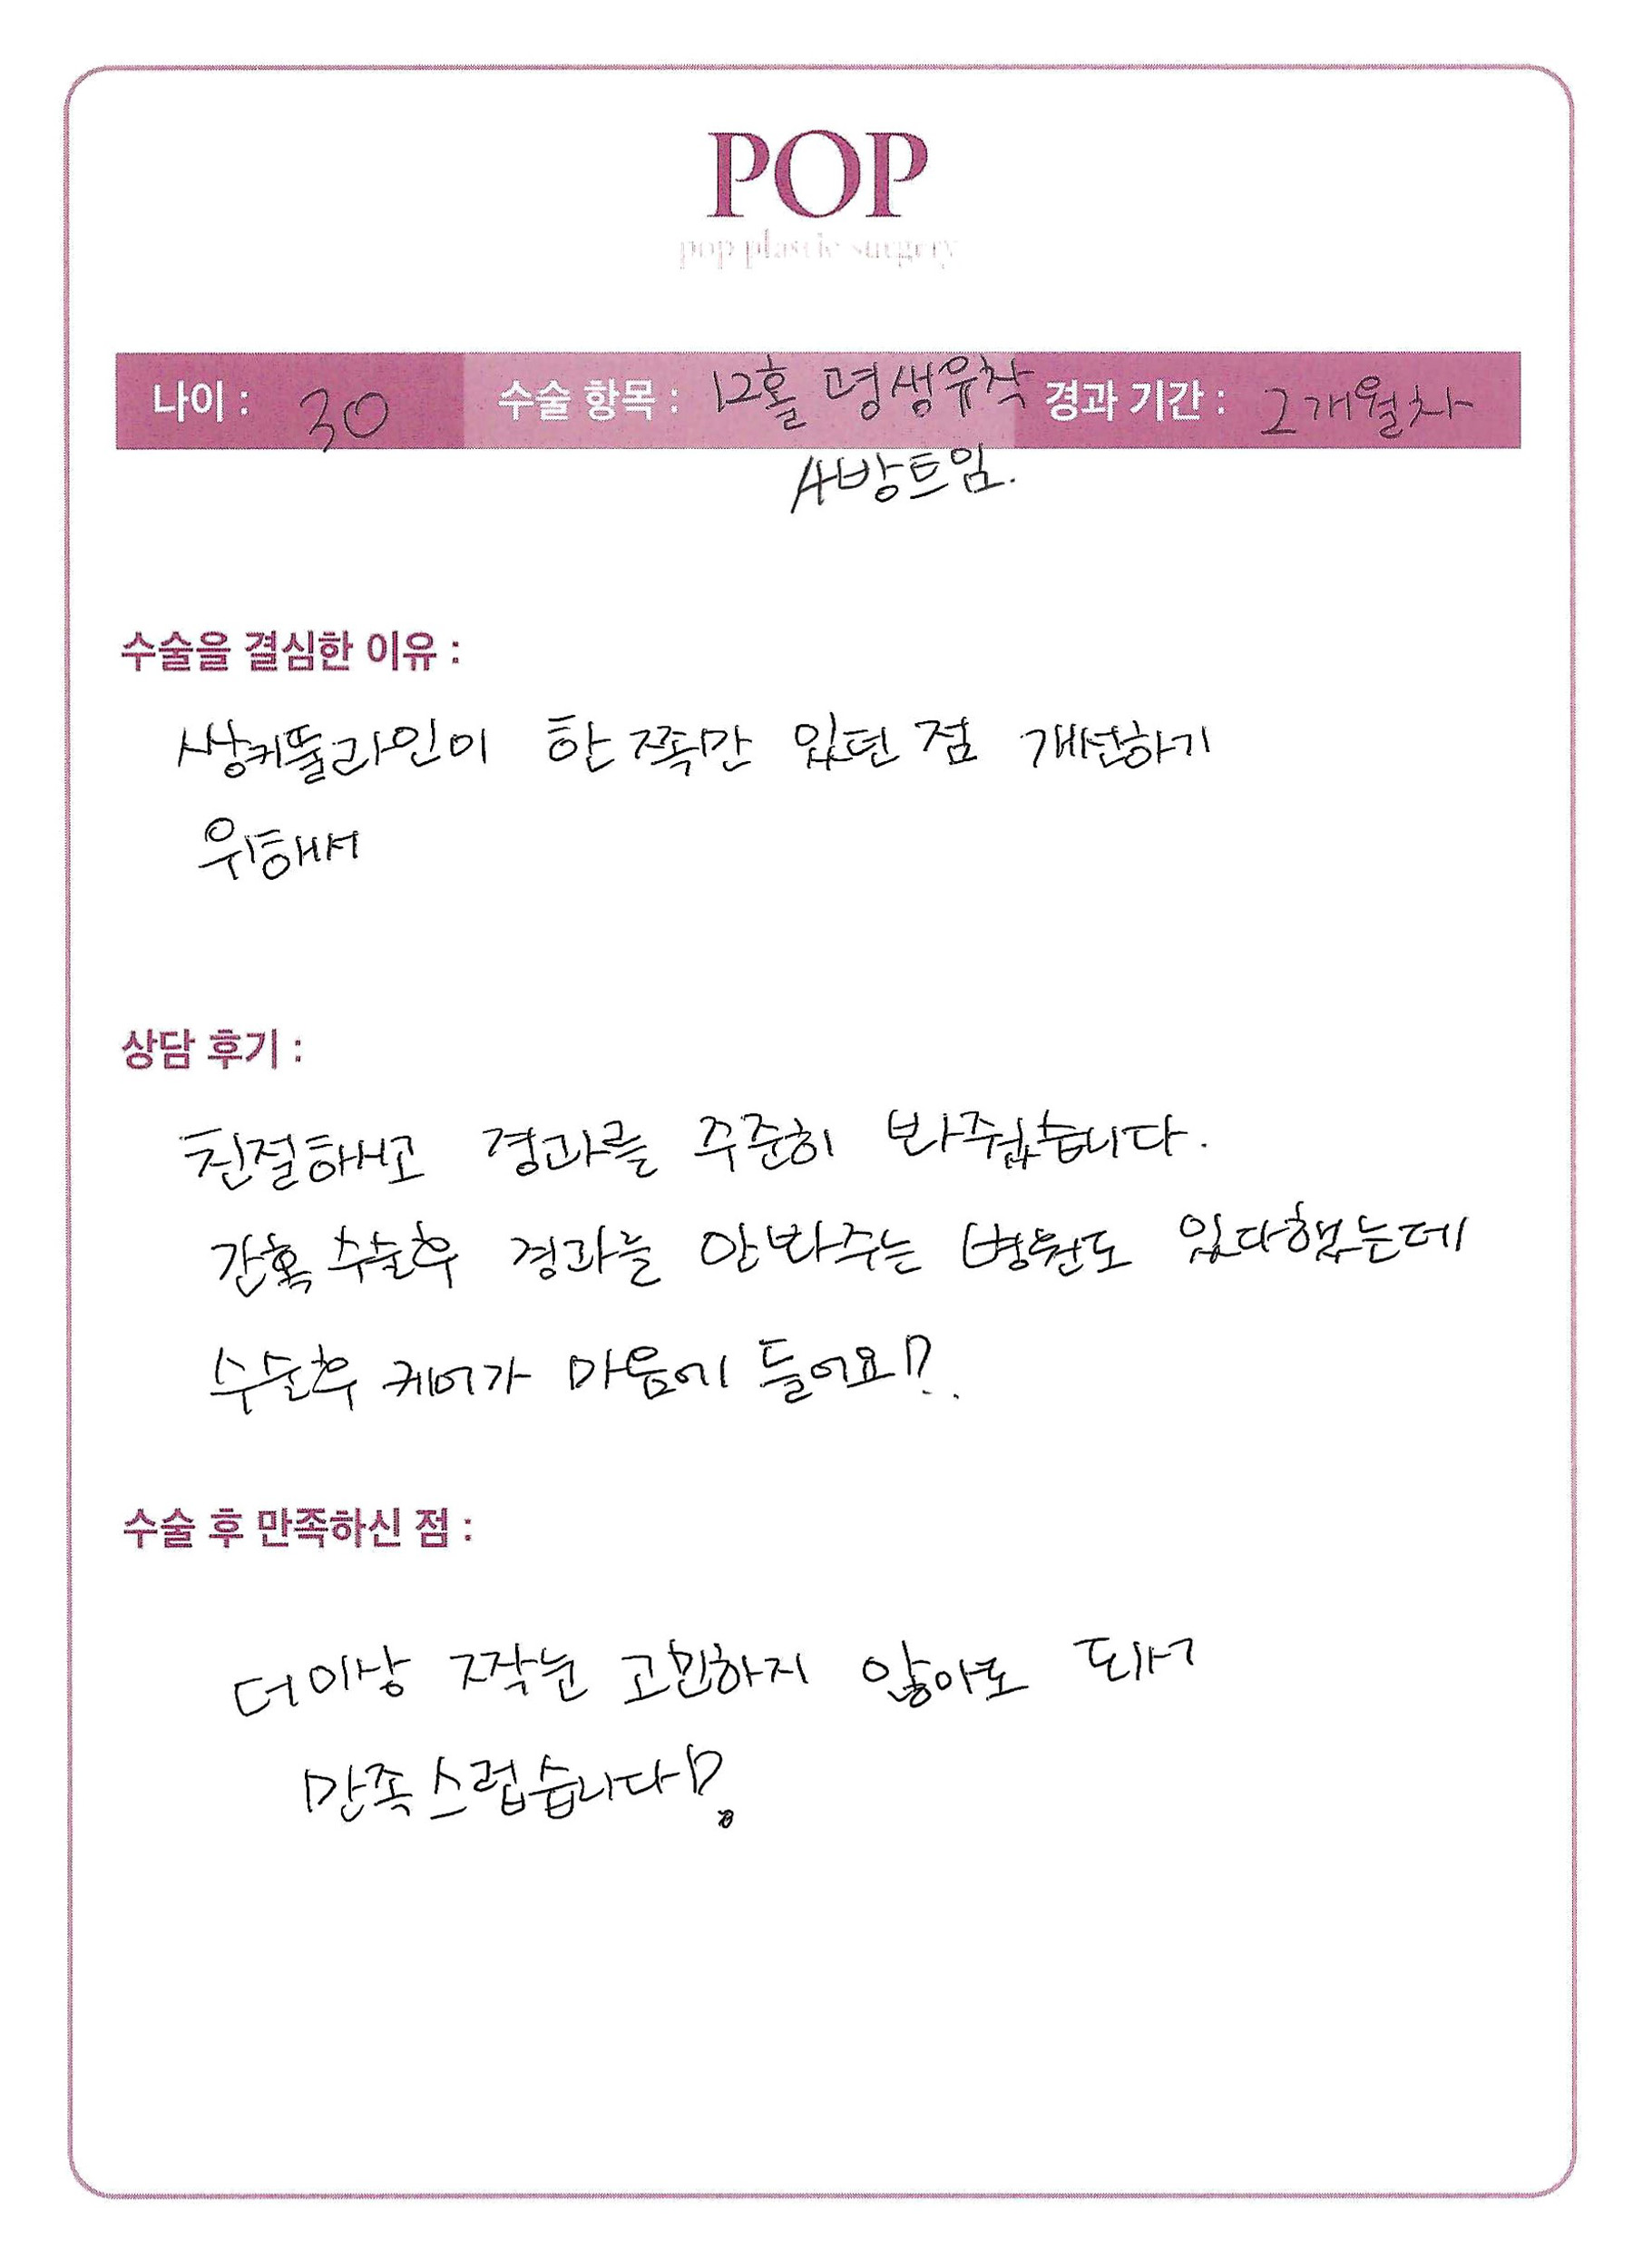 POP
pop plastic surgery
나이 : 30 수술 항목 : 12홀 평생유착 경과 기간 : 2개월차
4방트임.
수술을 결심한 이유 :
쌍커풀라인이 한 쪽만 있던 점 개선하기
위해서
상담 후기 :
친절하고 경과를 꾸준히 봐주셨습니다.
간혹 수술후 경과를 안봐주는 병원도 있다했는데
수술후 케어가 마음에 들어요!?..
수술 후 만족하신 점 :
더이상 짝눈 고민하지 않아도 되서
만족스럽습니다!?